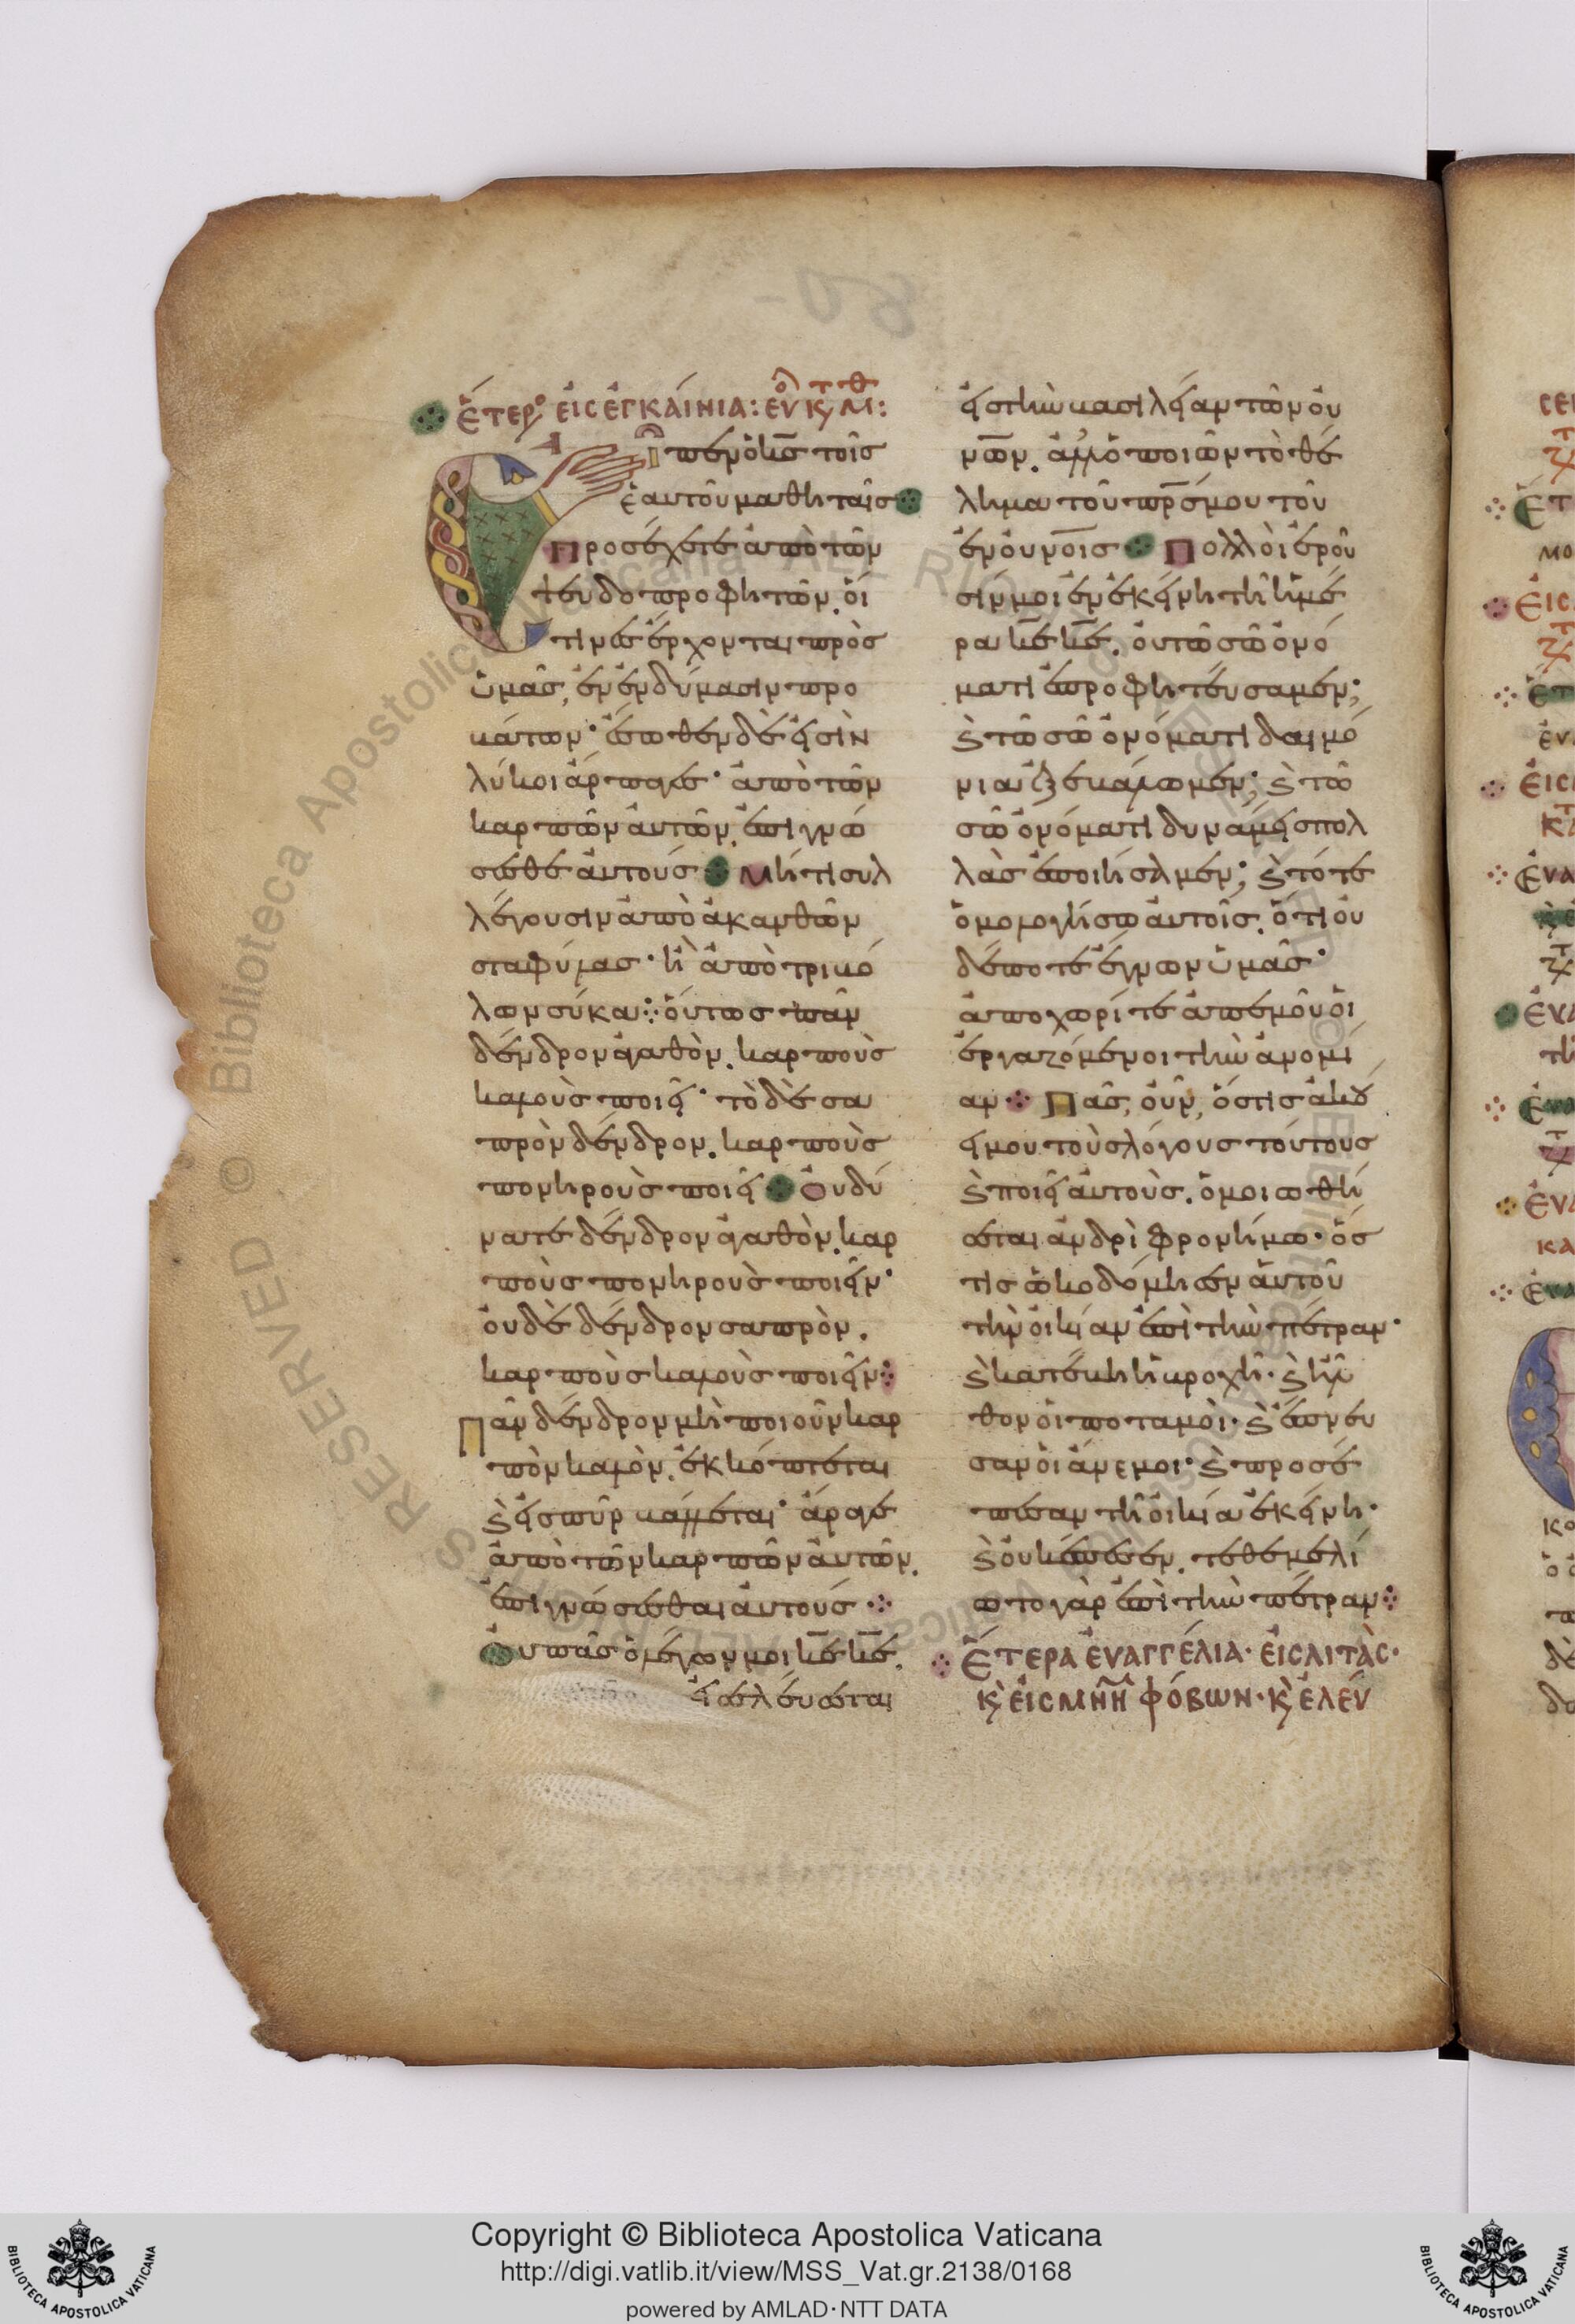 Ἕτερ εἰς ἐγκαίνια: εὐ κ Μτθ:
Εἶπεν ὁ κς τοῖς
ἑαυτοῦ μαθηταῖς
Προσέχετε ἀπὸ τῶν
ψευδοπροφητῶν. οἵ
τινες ἔρχονται πρὸς
ὑμᾶς, ἐν ἐνδύμασιν προ
βάτων· ἔσωθεν δὲ εἰσὶν
λύκοι ἅρπαγες· ἀπὸ τῶν
καρπῶν αὐτῶν, ἐπιγνώ
σεσθε αὐτούς Μήτι συλ
λέγουσιν ἀπὸ ἀκανθῶν
σταφύλας· ἢ ἀπὸ τριβό
λων σύκα: οὕτως πᾶν
δένδρον ἀγαθὸν. καρποὺς
καλοὺς ποιεῖ· τὸ δὲ σα
πρὸν δένδρον. καρποὺς
πονηροὺς ποιεῖ Οὐ δύ
ναται δένδρον ἀγαθὸν. καρ
ποὺς πονηροὺς ποιεῖν·
οὐδὲ δένδρον σαπρὸν.
καρποὺς καλοὺς ποιεῖν
Πᾶν δένδρον μὴ ποιοῦν καρ
πὸν καλὸν. ἐκκόπτεται
κ εἰς πῦρ βάλλεται· ἄραγε
ἀπὸ τῶν καρπῶν αὐτῶν.
ἐπιγνώσεσθαι αὐτούς
Οὐ πᾶς ὁ λέγων μοι κε κε.
εἰσελεύσεται
εἰς τὴν βασιλείαν τῶν οὐ
νῶν. ἀλλ' ὁ ποιῶν τὸ θέ
λημα τοῦ πρς μου τοῦ
ἐν οὐνοῖς Πολλοὶ ἐροῦ
σίν μοι ἐν ἐκείνη τῆ ἡμέ
ρα κε κε. οὐ τῶ σῶ ὀνό
ματι ἐπροφητεύσαμεν;
κ τῶ σῶ ὀνόματι δαιμό
νια ἐξεβάλωμεν; κ τῶ
σῶ ὀνόματι δυνάμεις πολ
λὰς ἐποιήσαμεν; κ τότε
ὁμολογήσω αὐτοῖς. ὅτι οὐ
δέποτε ἔγνων ὑμᾶς·
ἀποχωρίτε ἀπ' ἐμοῦ οἱ
ἐργαζόμενοι τὴν ἀνομί
αν Πᾶς, οὖν, ὅστις ἀκού
ει μου τοὺς λόγους τούτους
κ ποιεῖ αὐτοὺς. ὁμοιωθή
σεται ἀνδρὶ φρονήμω· ὅσ
τις ὠκοδόμησεν αὐτοῦ
τὴν οἰκίαν ἐπὶ τὴν πέτραν·
κ κατέβη ἡ βροχὴ· κ ἦλ
θον οἱ ποταμοὶ· κ ἔπνευ
σαν οἱ ἄνεμοι· κ προσέ
πεσαν τῆ οἰκία ἐκείνη·
κ οὐκ ἔπεσεν. τεθεμελί
ωτο γὰρ ἐπὶ τὴν πέτραν
Ἕτερα εὐαγγέλια· εἰς λιτὰς·
κ εἰς μνήμ φόβων· κ ἐλεύ